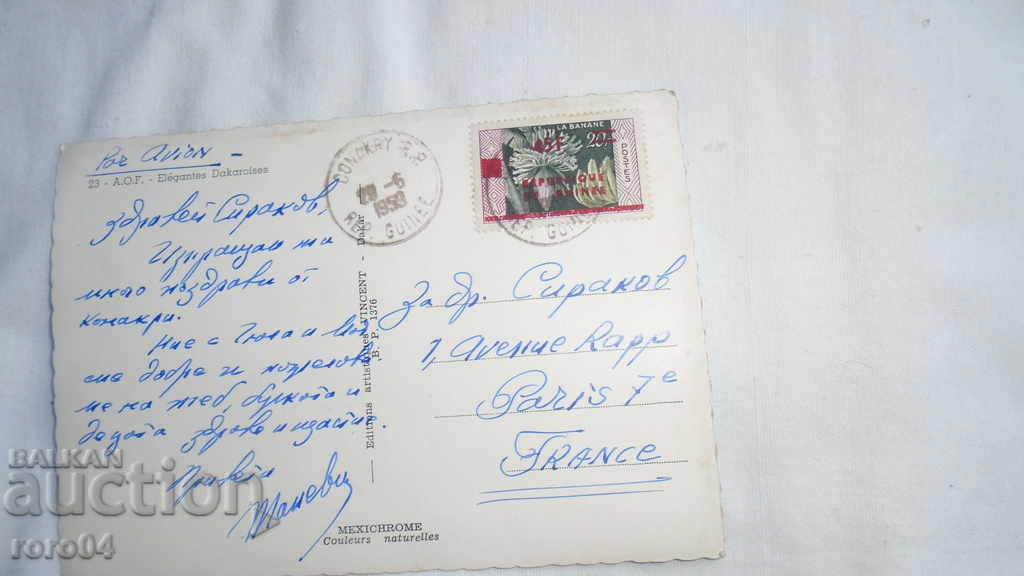 Par avion
23 - A.O.F. - Elégantes Dakaroises
Здравей Сираков,
Изпращам ти
много поздрави от
Конакри.
Ние с
сме добре и
ме на теб, булката и
децата здраве и щастие.
Привет
Editions artistiques VINCENT - Dakar
B. P. 1376
CONAKRY R.P.
-6
REP. GUINEE
LA BANANE
20F
45F
POSTES
REPUBLIQUE
DE GUINEE
REP. GUINEE
За др. Сираков
1, Avenue Rapp
Paris 7e
FRANCE
MEXICHROME
Couleurs naturelles
BALKAN
auction
roro04